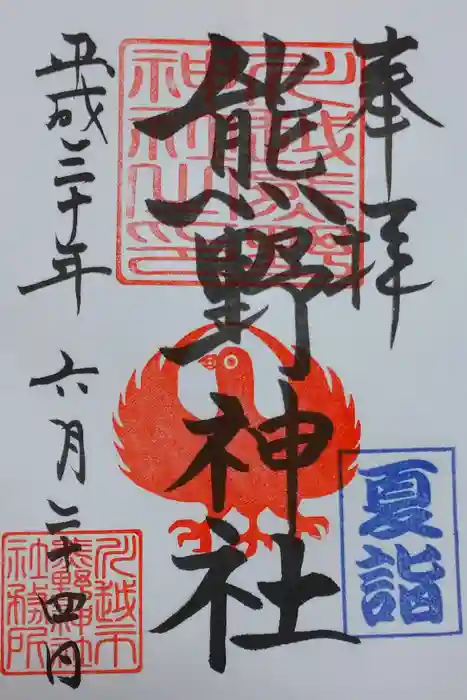 奉拝
川越熊野
神社之印
熊野神社
平成三十年 六月二十四日
夏詣
川越市
熊野神社
社務所